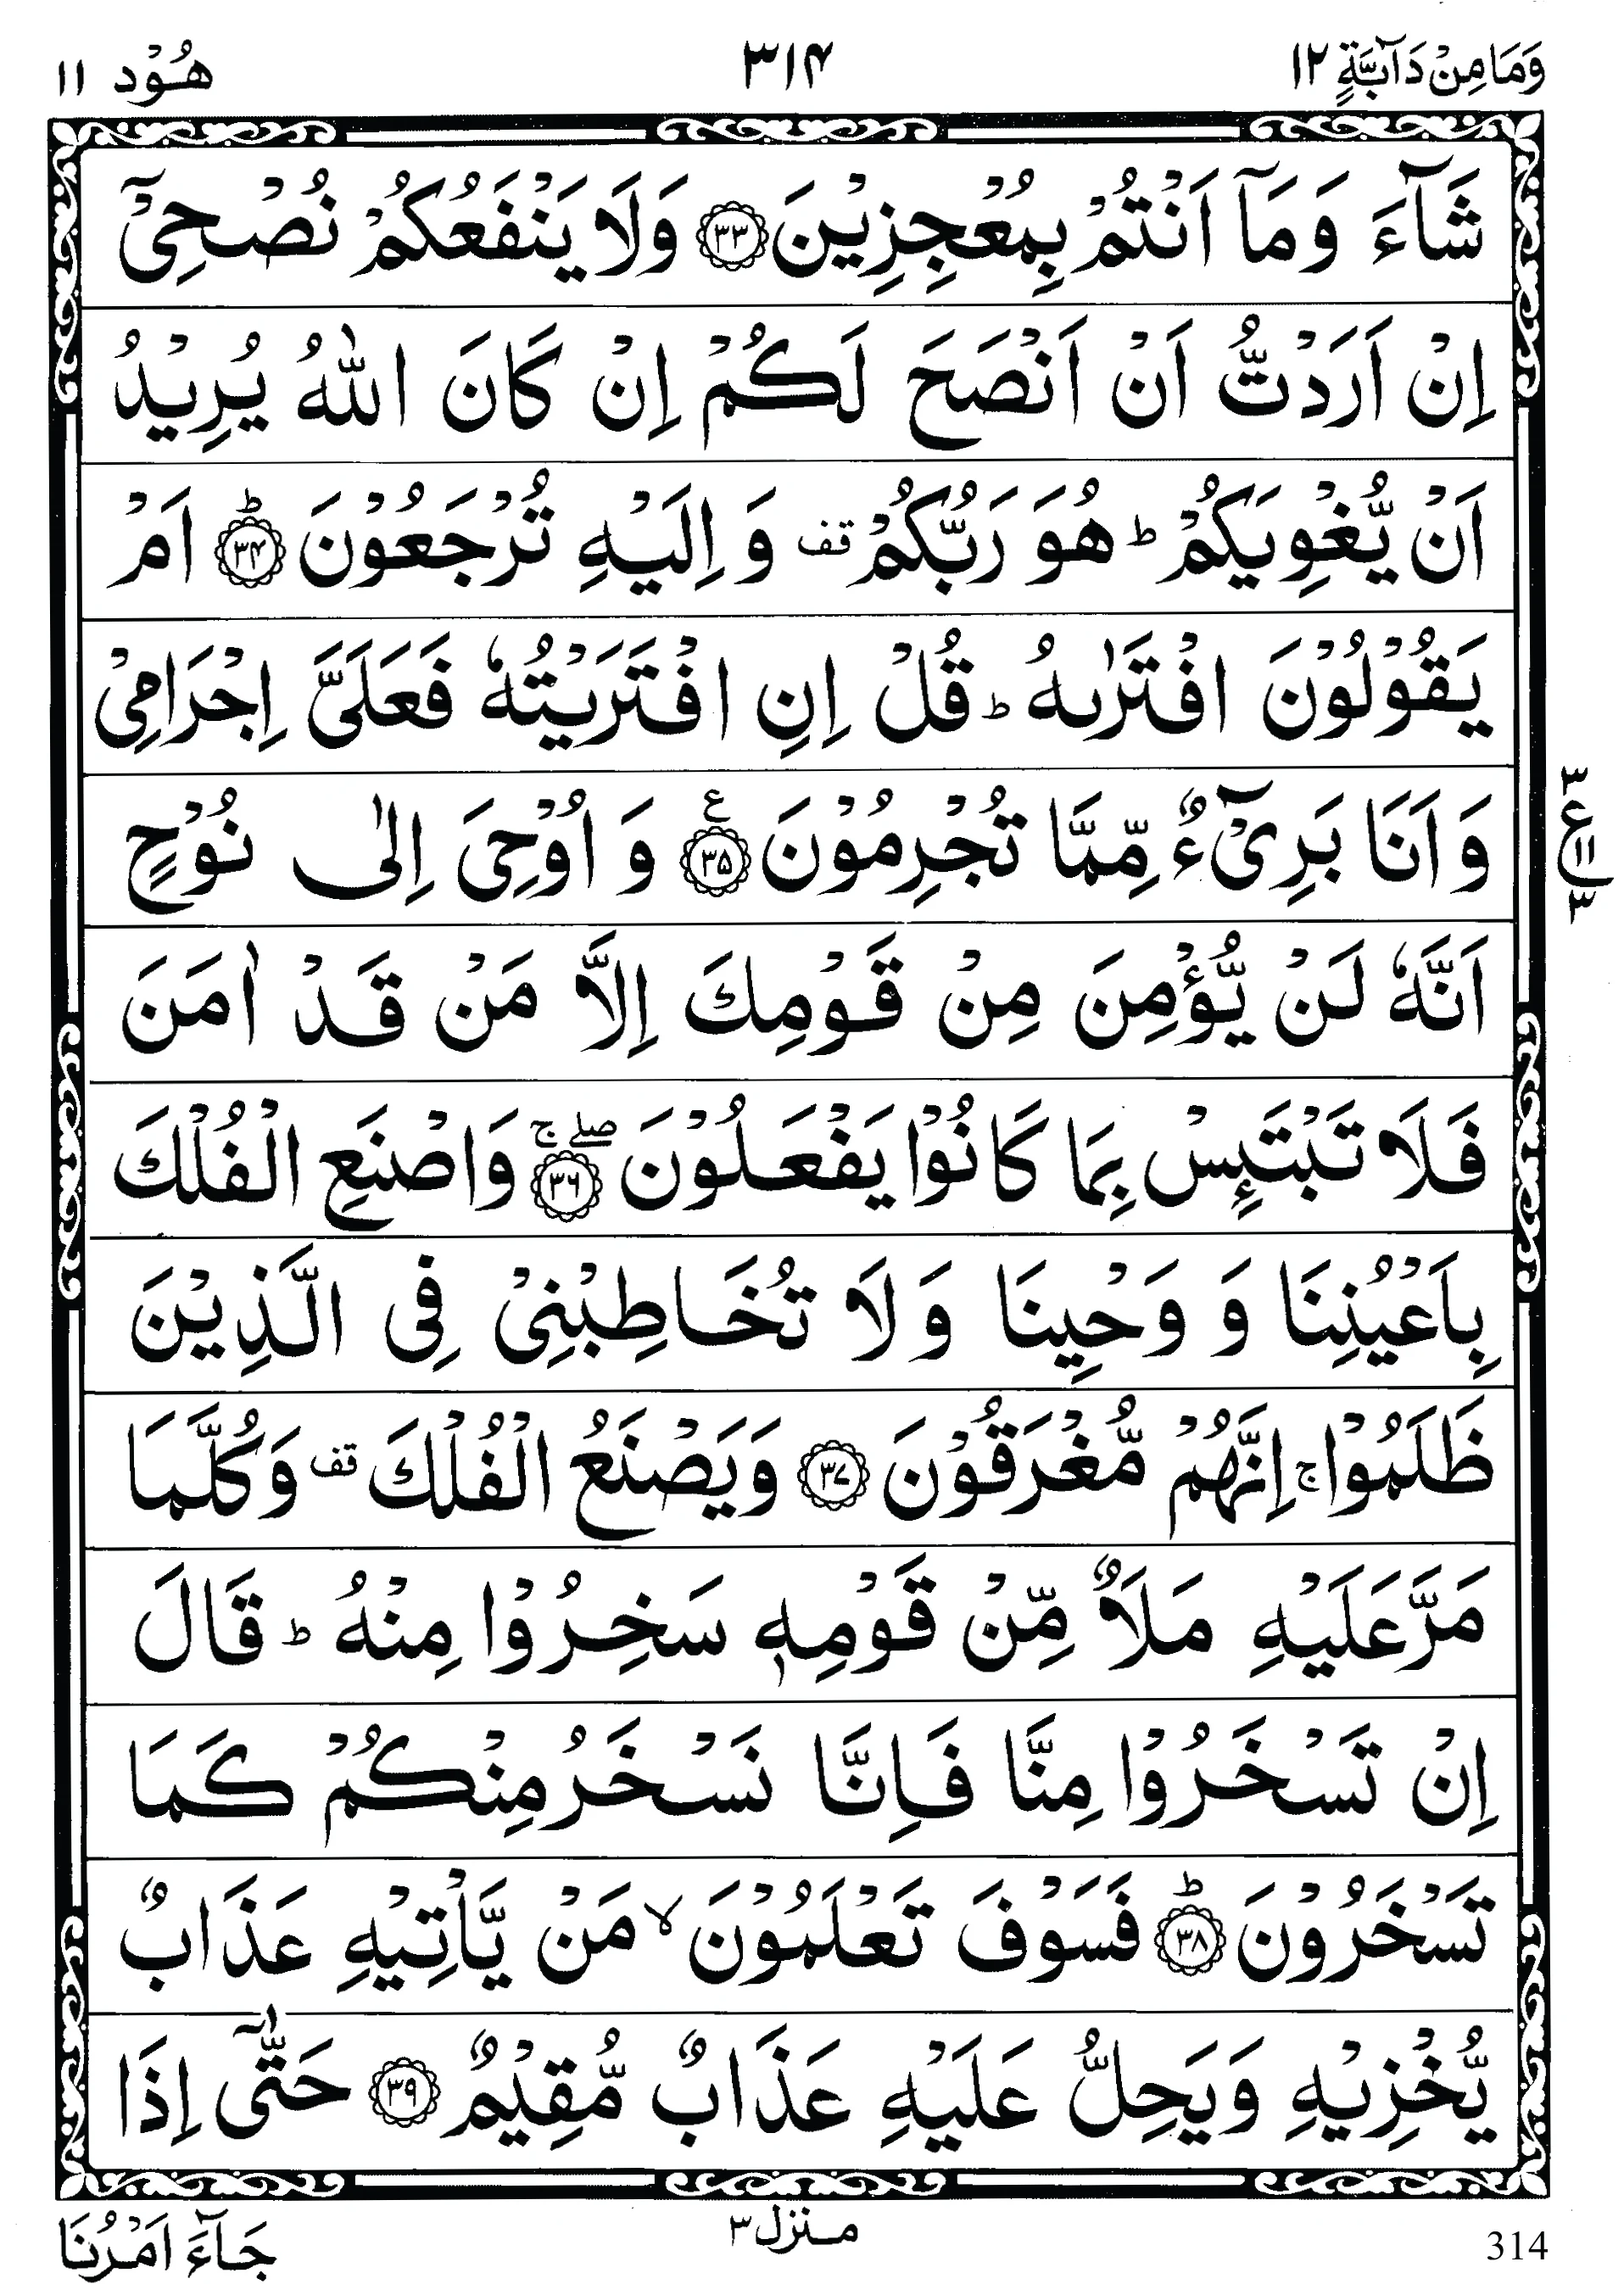 وَمَا مِنْ دَآبَّةٍ ١٢ ٣١۴ هُوْد ١١
شَآءَ وَمَآ اَنْتُمْ بِمُعْجِزِيْنَ ﴿٣٣﴾ وَلَا يَنْفَعُكُمْ نُصْحِيْٓ
اِنْ اَرَدْتُّ اَنْ اَنْصَحَ لَكُمْ اِنْ كَانَ اللّٰهُ يُرِيْدُ
اَنْ يُّغْوِيَكُمْ ؕ هُوَ رَبُّكُمْ قف وَ اِلَيْهِ تُرْجَعُوْنَ ؕ﴿٣۴﴾ اَمْ
يَقُوْلُوْنَ افْتَرٰىهُ ؕ قُلْ اِنِ افْتَرَيْتُهٗ فَعَلَيَّ اِجْرَامِيْ
وَ اَنَا بَرِيْٓءٌ مِّمَّا تُجْرِمُوْنَ ﴿٣۵﴾ ع وَ اُوْحِيَ اِلٰى نُوْحٍ
٣ ع ١١ ٣
اَنَّهٗ لَنْ يُّؤْمِنَ مِنْ قَوْمِكَ اِلَّا مَنْ قَدْ اٰمَنَ
فَلَا تَبْتَئِسْ بِمَا كَانُوْا يَفْعَلُوْنَ ﴿٣٦﴾ صلے ج وَاصْنَعِ الْفُلْكَ
بِاَعْيُنِنَا وَ وَحْيِنَا وَ لَا تُخَاطِبْنِيْ فِي الَّذِيْنَ
ظَلَمُوْا ۚ اِنَّهُمْ مُّغْرَقُوْنَ ﴿٣٧﴾ وَيَصْنَعُ الْفُلْكَ قف وَكُلَّمَا
مَرَّ عَلَيْهِ مَلَاٌ مِّنْ قَوْمِهٖ سَخِرُوْا مِنْهُ ؕ قَالَ
اِنْ تَسْخَرُوْا مِنَّا فَاِنَّا نَسْخَرُ مِنْكُمْ كَمَا
تَسْخَرُوْنَ ؕ﴿٣٨﴾ فَسَوْفَ تَعْلَمُوْنَ ۙ مَنْ يَّاْتِيْهِ عَذَابٌ
يُّخْزِيْهِ وَيَحِلُّ عَلَيْهِ عَذَابٌ مُّقِيْمٌ ﴿٣٩﴾ حَتّٰٓى اِذَا
314 منزل ٣ جَآءَ اَمْرُنَا